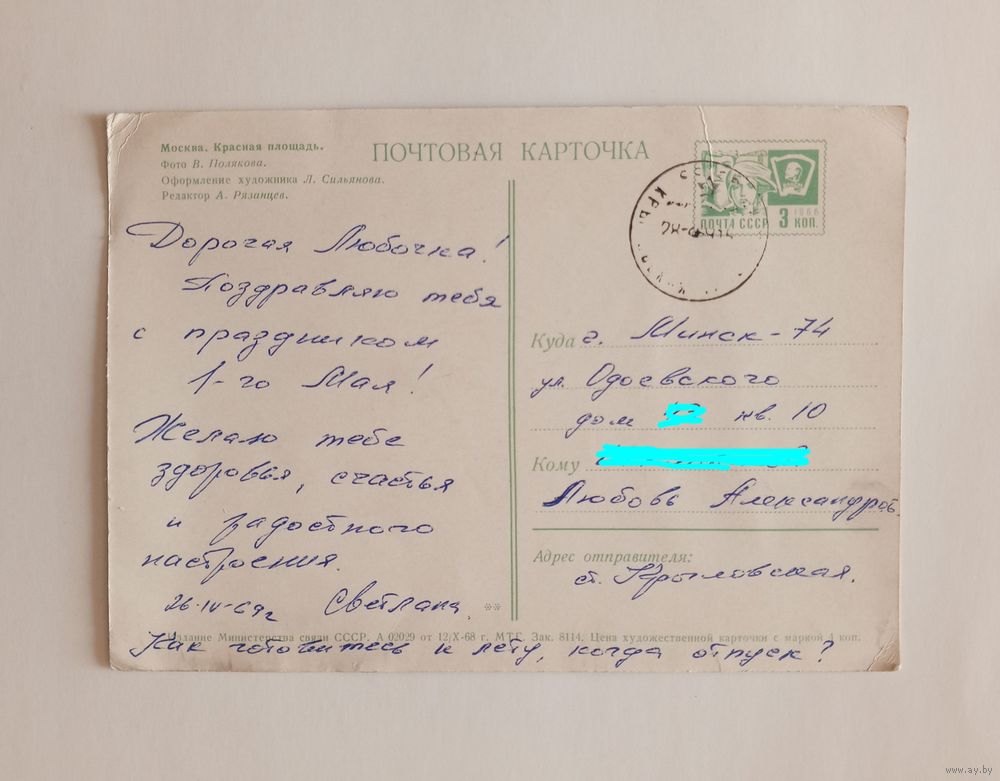 Москва. Красная площадь.
Фото В. Полякова.
Оформление художника Л. Сильянова.
Редактор А. Рязанцев.
ПОЧТОВАЯ КАРТОЧКА
ПОЧТА СССР 3 КОП.
1966
Дорогая Любочка!
Поздравляю тебя
с праздником
1-го Мая!
Желаю тебе
здоровья, счастья
и радостного
настроения.
26-IV-69г Светлана
Как готовитесь к лету, когда отпуск?
Куда г. Минск-74
ул. Одоевского
дом кв. 10
Кому
Любовь Александров.
Адрес отправителя:
ст. Крыловская.
Издание Министерства связи СССР. А 02029 от 12/X-68 г. МТГ. Зак. 8114. Цена художественной карточки с маркой 4 коп.
www.ay.by